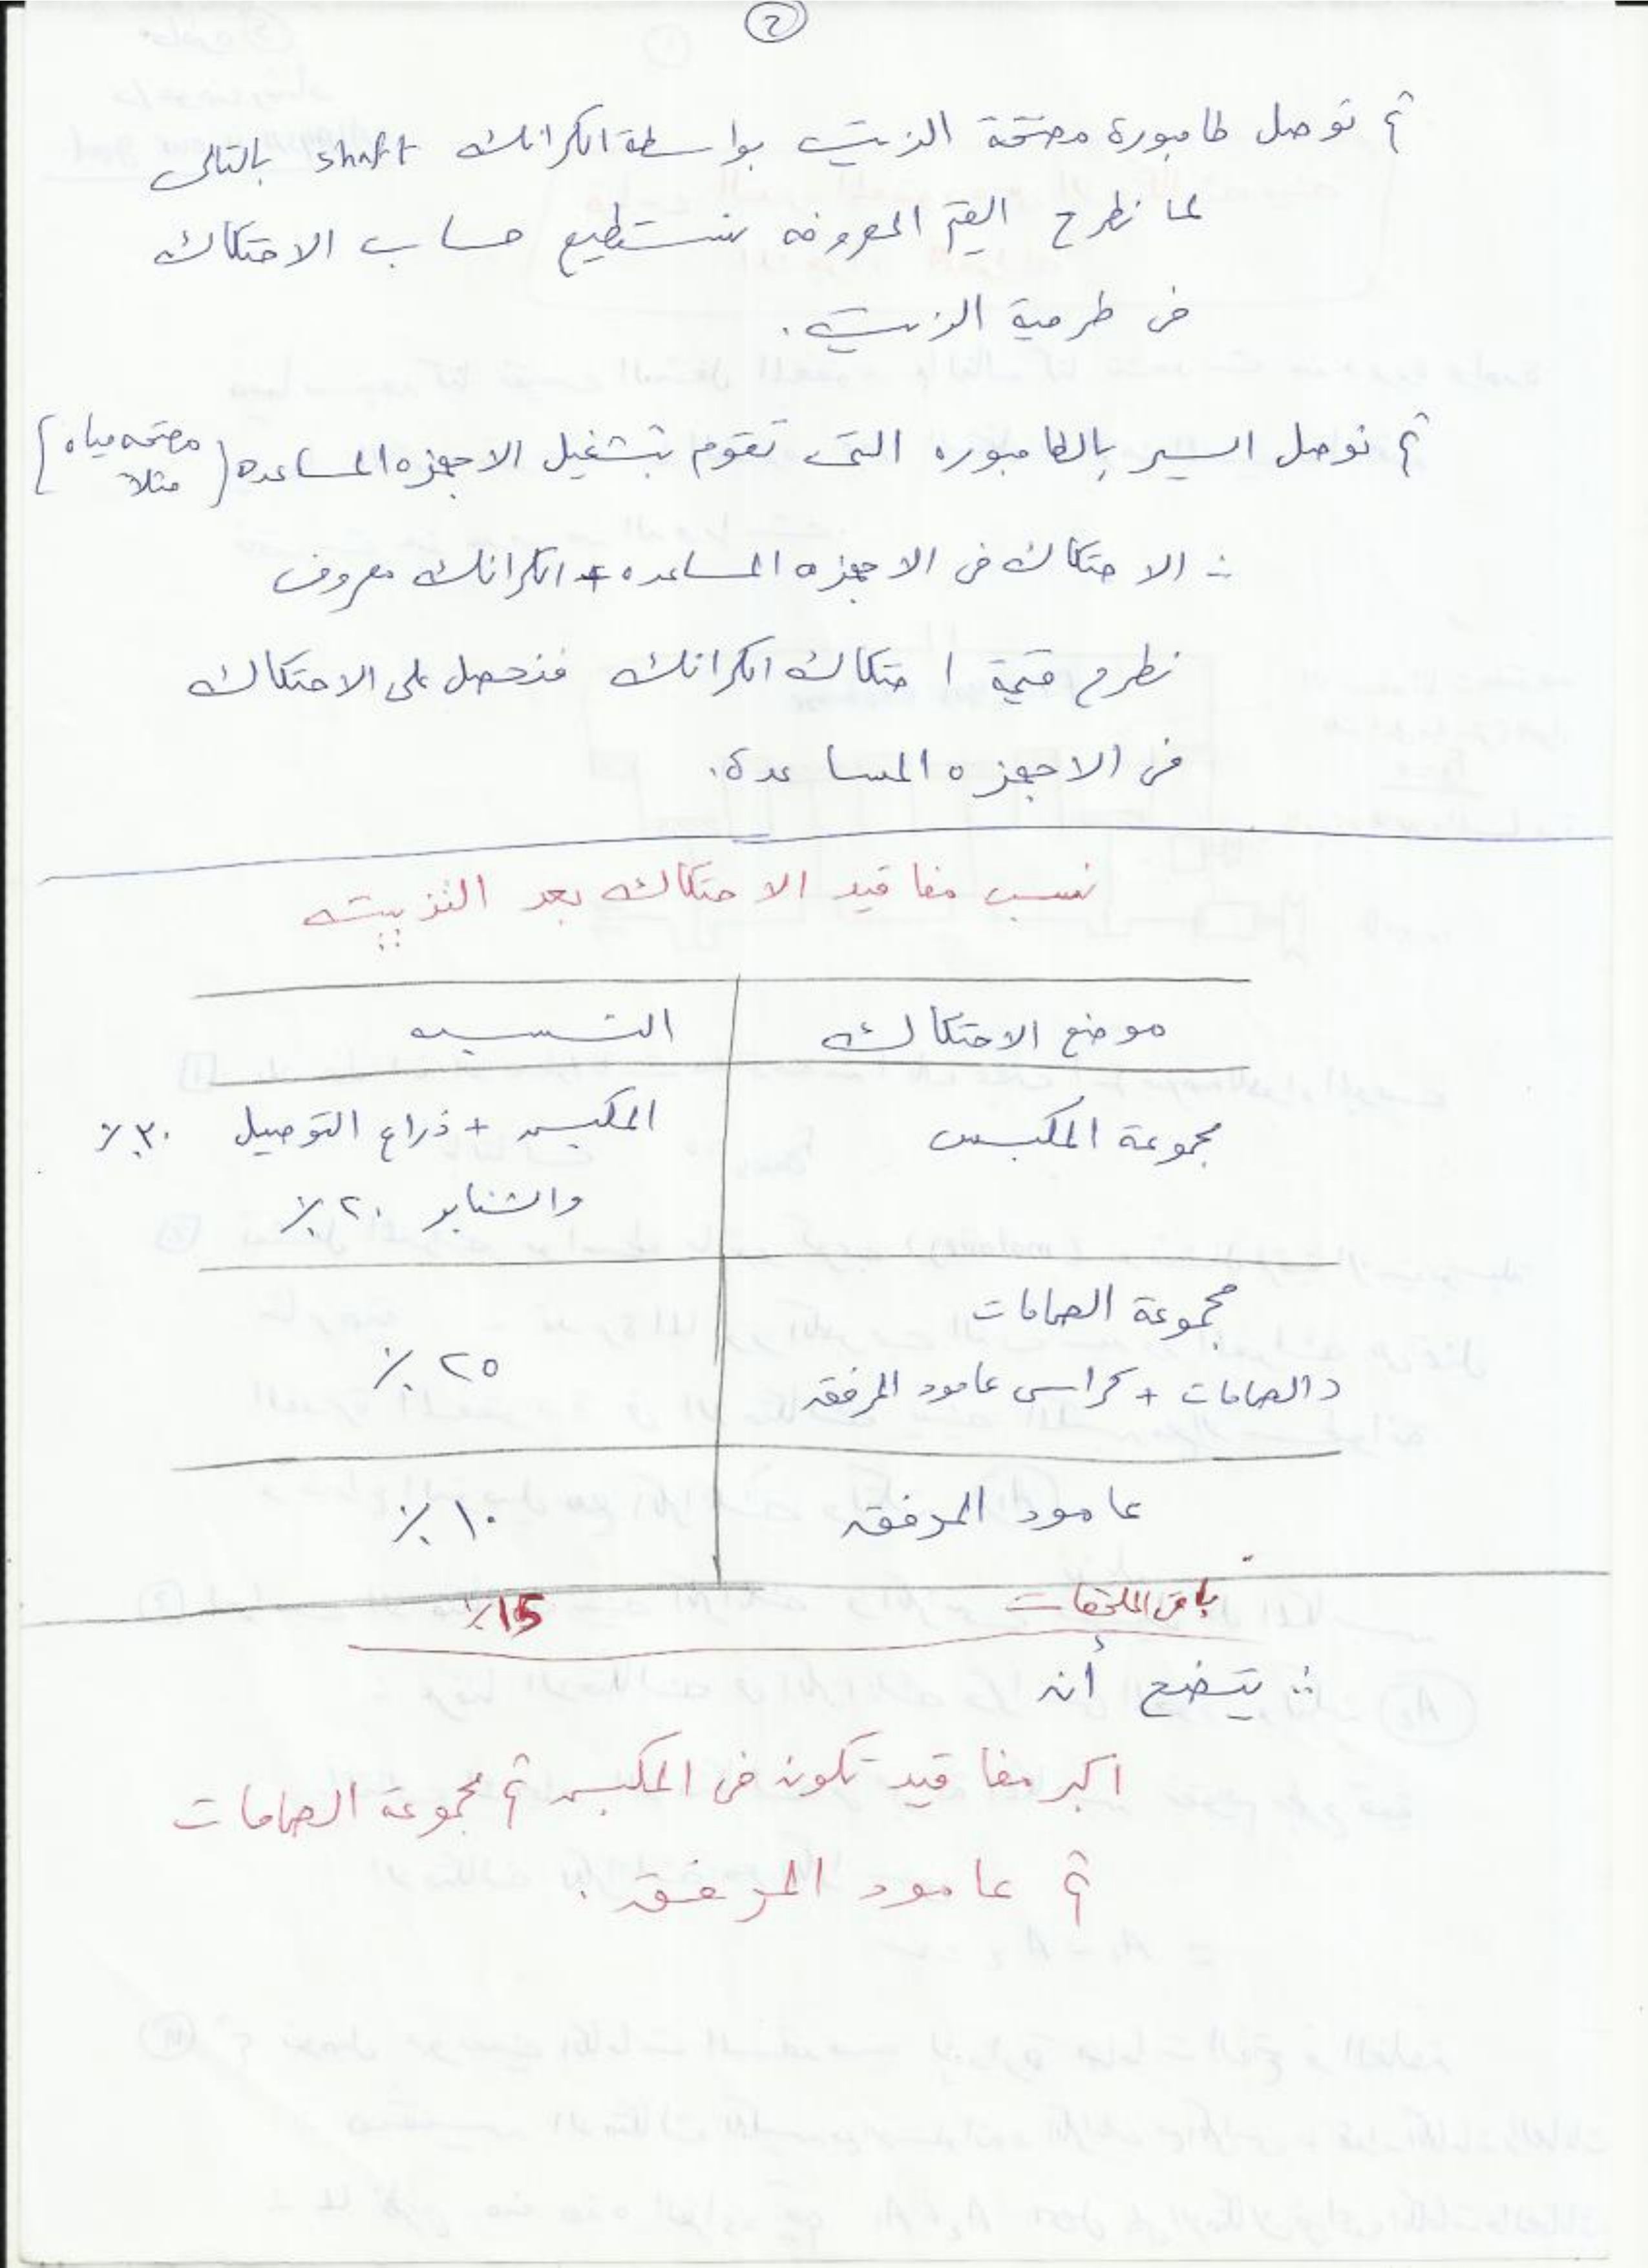 ٢
ثم نوصل طامبورة مضخة الزيت بواسطة الكرانك shaft بالتالى
لما نطرح القيم المعروفه نستطيع حساب الاحتكاك
فى طرمبة الزيت.
ثم نوصل السير بالطامبوره التى تقوم بتشغيل الاجهزه المساعده (مضخه مياه مثلا)
∴ الاحتكاك فى الاجهزه المساعده + الكرانك معروف
نطرح قيمة احتكاك الكرانك فنحصل على الاحتكاك
فى الاجهزه المساعدة.
نسب مفاقيد الاحتكاك بعد التزييت
موضع الاحتكاك النسبه
مجموعة المكبس المكبس + ذراع التوصيل ٣٠٪
والشنابر ٢٠٪
مجموعة الصمامات
(الصمامات + كراسى عامود المرفق ٢٥٪
عامود المرفق ١٠٪
باقى الملحقات 15٪
∴ يتضح أن
اكبر مفاقيد تكون فى المكبس ثم مجموعة الصمامات
ثم عامود المرفق.